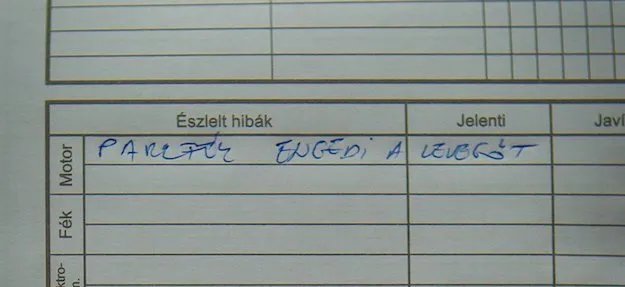 Észlelt hibák Jelenti Javí
Motor PARKFÉK ENGEDI A LEVEGŐT
Fék
ktro-
n.